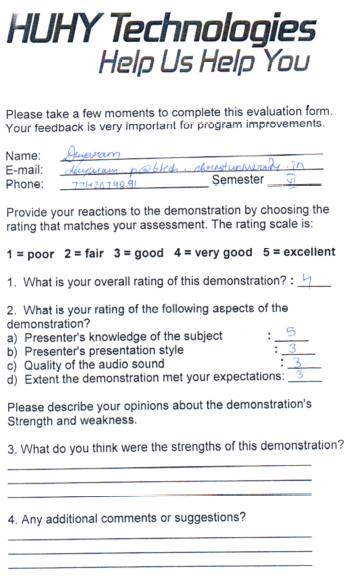 HUHY Technologies
Help Us Help You
Please take a few moments to complete this evaluation form.
Your feedback is very important for program improvements.
Name:
E-mail:
Phone: Semester VI
Provide your reactions to the demonstration by choosing the
rating that matches your assessment. The rating scale is:
1 = poor 2 = fair 3 = good 4 = very good 5 = excellent
1. What is your overall rating of this demonstration? : 4
2. What is your rating of the following aspects of the
demonstration?
a) Presenter's knowledge of the subject : 5
b) Presenter's presentation style : 3
c) Quality of the audio sound : 3
d) Extent the demonstration met your expectations: 3
Please describe your opinions about the demonstration's
Strength and weakness.
3. What do you think were the strengths of this demonstration?
4. Any additional comments or suggestions?